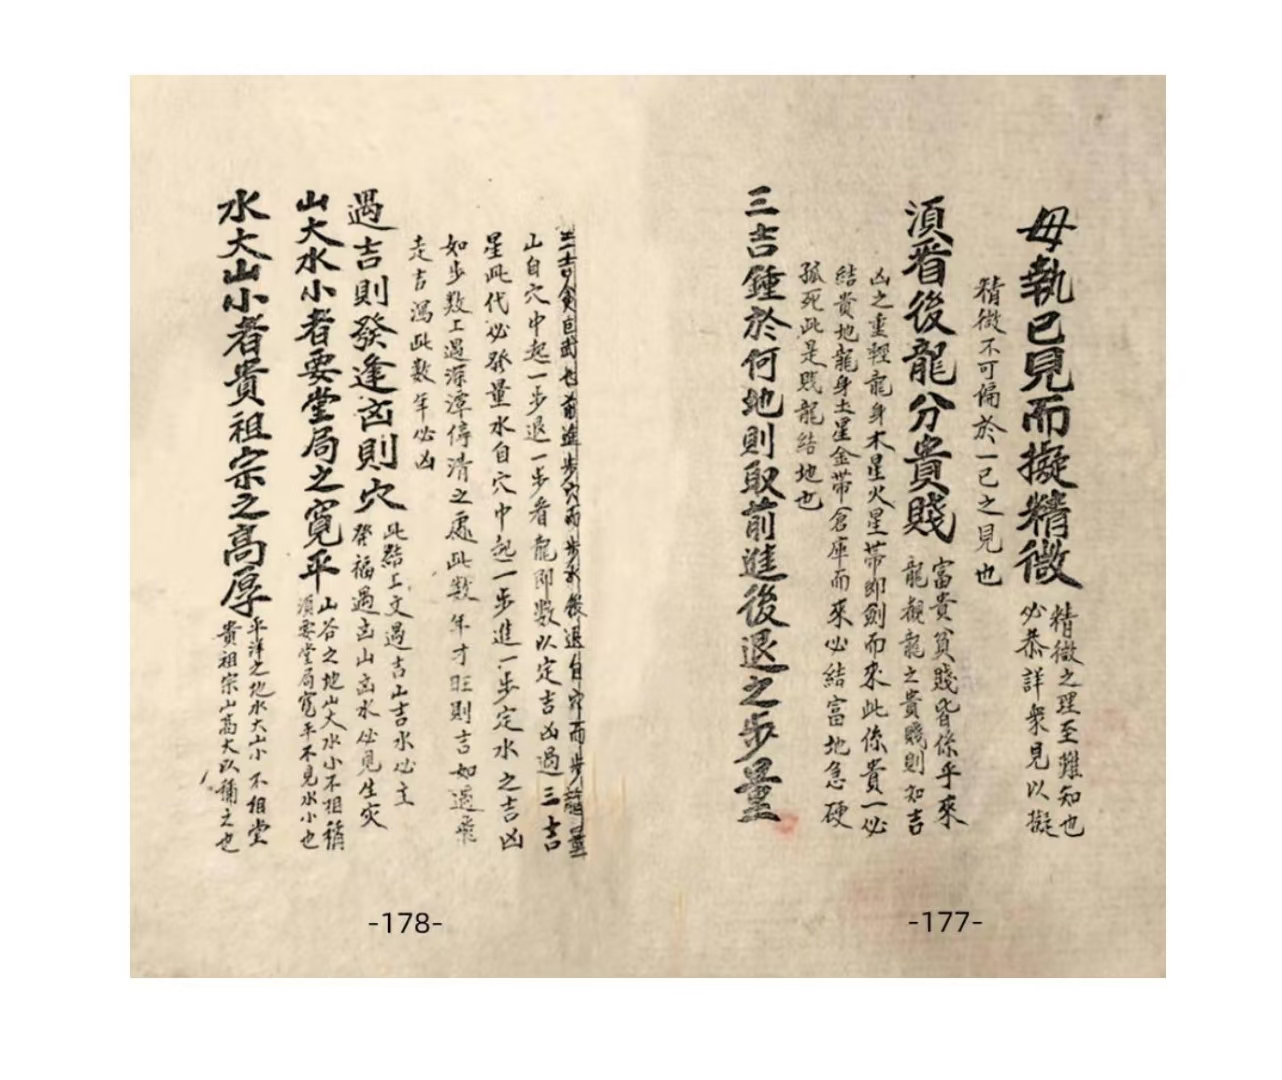 毋執已見而擬精微
精微之理至難知也
必恭詳衆見以擬
精微不可偏於一已之見也
須看後龍分貴賤
富貴貧賤皆係乎來
龍觀龍之貴賤則知吉
凶之重輕龍身木星火星帯印劍而來此係貴一必
結貴地龍身土星金帯倉庫而來必結富地急硬
孤死此是賤龍結地也
三吉鍾於何地則取前進後退之步量
-177-
三吉貪巨武也前進步穴而步水後退自穴而步龍量
山自穴中起一步退一步看龍即数以定吉凶過三吉
星此代必發量水自穴中起一步進一步定水之吉凶
如步数上遇深潭停清之處此数年才旺則吉如遇飛
走吉瀉此数年必凶
遇吉則發逢凶則穴
此結上文遇吉山吉水必主
發福遇凶山凶水必見生灾
山大水小者要堂局之寛平
山谷之地山大水小不相稱
須要堂局寛平不見水小也
水大山小者貴祖宗之高厚
平洋之地水大山小不相堂
貴祖宗山高大以稱之也
-178-